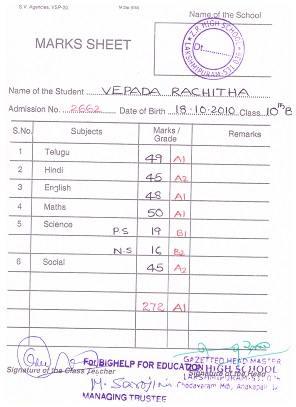 S.V. Agencies, VSP-20.
Name of the School
MARKS SHEET
Z.P. HIGH SCHOOL
Dt.
LAKSHMIPURAM
Name of the Student VEPADA RACHITHA
Admission No. 2662 Date of Birth 18-10-2010 Class 10th B
S.No. Subjects Marks / Grade Remarks
1 Telugu 49 A1
2 Hindi 45 A2
3 English 48 A1
4 Maths 50 A1
5 Science P.S 19 B1
N.S 16 B2
6 Social 45 A2
272 A1
For BIGHELP FOR EDUCATION
GAZETTED HEAD MASTER
Z.P. HIGH SCHOOL
Signature of the Class Teacher
Signature of the Head
Chodavaram Md., Anakapalli
MANAGING TRUSTEE